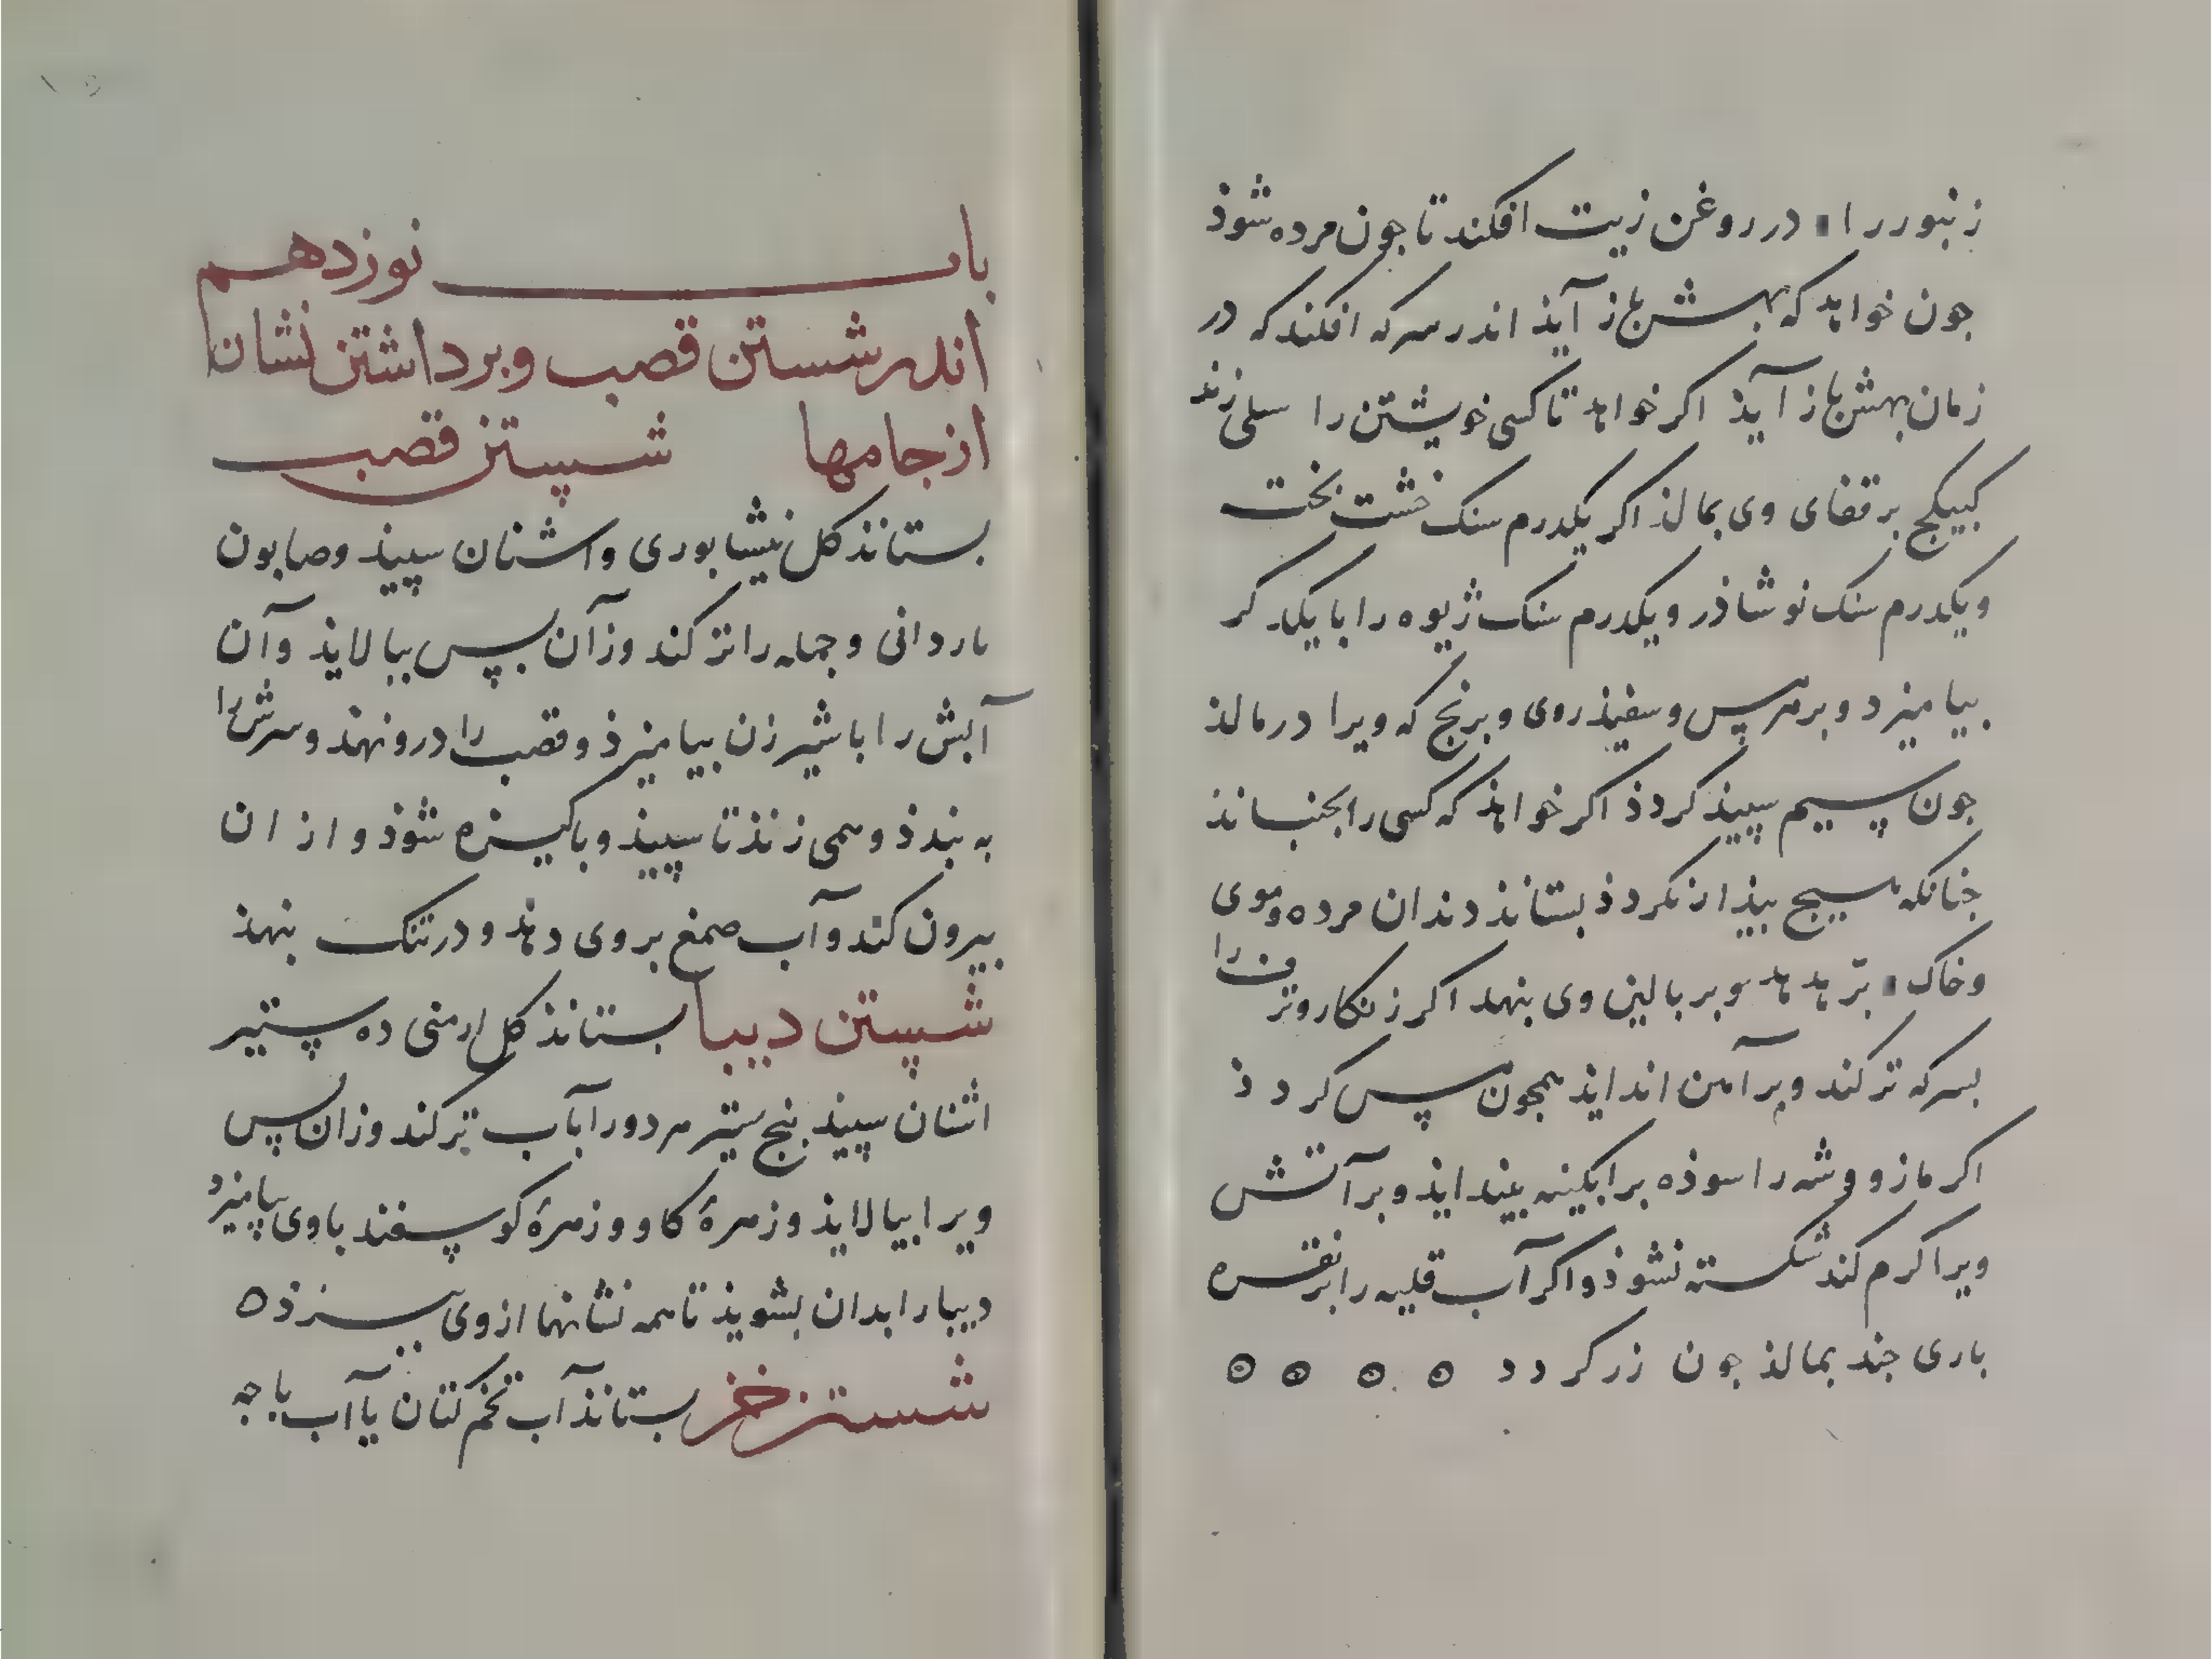 زنبور را در روغن زیت افکند تا جون مرده شوذ
جون خواهد که بهش باز آیذ اندر سرکه افکند که در
زمان بهش باز آیذ اکر خواهد تا کسی خویشتن را سلی زند
کبیکج بر قفای وی بمالذ اکر یکدرم سنک خشت بخت
ویکدرم سنک نوشاذر ویکدرم سنک ژیوه را با یکدکر
بیامیزد وبر مس وسفیذ روی وبرنج که ویرا درمالذ
جون سیم سپیذ کردذ اکر خواهذ که کسی را بجنبانذ
جنانکه هیج بیذار نکردذ بستانذ دندان مرده وموی
وخاک بر هدهد وبر بالین وی بنهد اکر زنکار را
بسرکه تر کند وبر آهن اندایذ همجون مس کردذ
اکر مازو وشه را سوذه بر ابکینه بیندایذ وبر آتش
ویرا کرم کند شکسته نشوذ واکر آب قلیه را بر نقره
باری جند بمالذ جون زر کردد ۵ ۵ ۵ ۵
باب نوزدهم
اندر شستن قصب وبرداشتن نشان
از جامها شستن قصب
بستانذ کل نیشابوری واشنان سپیذ وصابون
وجمله را تر کند وزآن بپس ببالایذ وآن
آبش را با شیر زن بیامیزذ وقصب را درو نهند وسرش را
به بندذ وهمی زنذ تا سپیذ وباکیزه شوذ واز ان
بیرون کند وآب صمغ بر وی دهذ ودر تنک بنهذ
شستن دیبا بستانذ کل ارمنی ده ستیر
اشنان سپیذ بنج ستیر هر دو را بآب تر کند وزان پس
ویرا ببالایذ وزهرهٔ کاو وزهرهٔ کوسفند با وی بیامیزد
دیبا را بدان بشویذ تا همه نشانها از وی ببرذ ۵
شستن خز بستانذ آب تخم کتان یا آب باجه